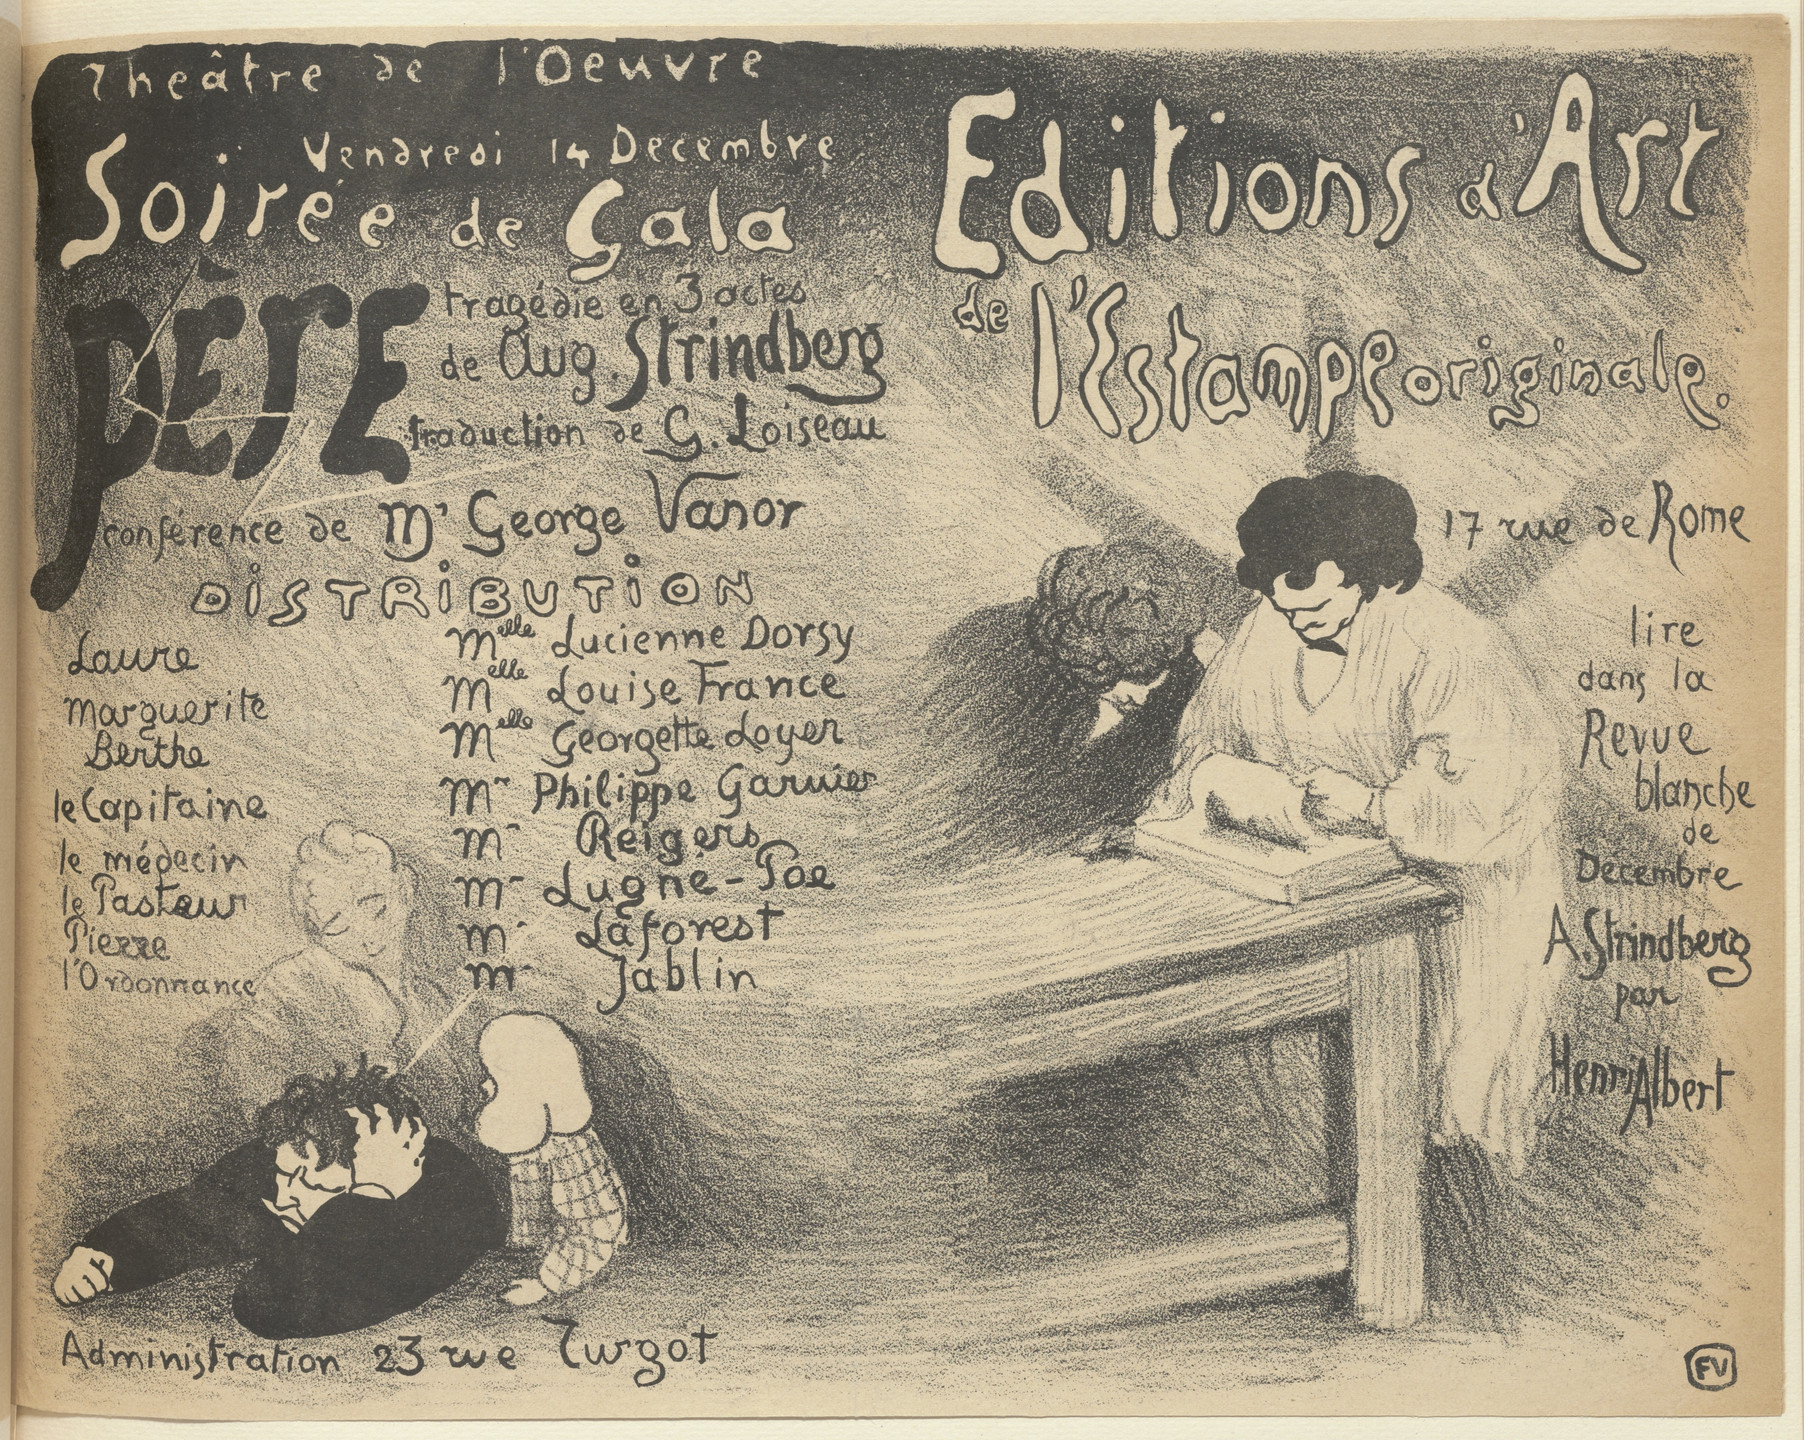 Theâtre de l'Oeuvre
Vendredi 14 Decembre
Soirée de Gala
PÈRE
tragédie en 3 actes
de Aug. Strindberg
traduction de G. Loiseau
conférence de Mr George Vanor
DISTRIBUTION
Laure Melle Lucienne Dorsy
Marguerite Melle Louise France
Berthe Melle Georgette Loyer
le Capitaine Mr Philippe Garnier
le médecin Mr Reigers
le Pasteur Mr Lugné-Poe
Pierre Mr Laforest
l'Ordonnance Mr Jablin
Administration 23 rue Turgot
Editions d'Art
de l'Estampe originale.
17 rue de Rome
lire
dans la
Revue
blanche
de
Decembre
A. Strindberg
par
Henri Albert
FV